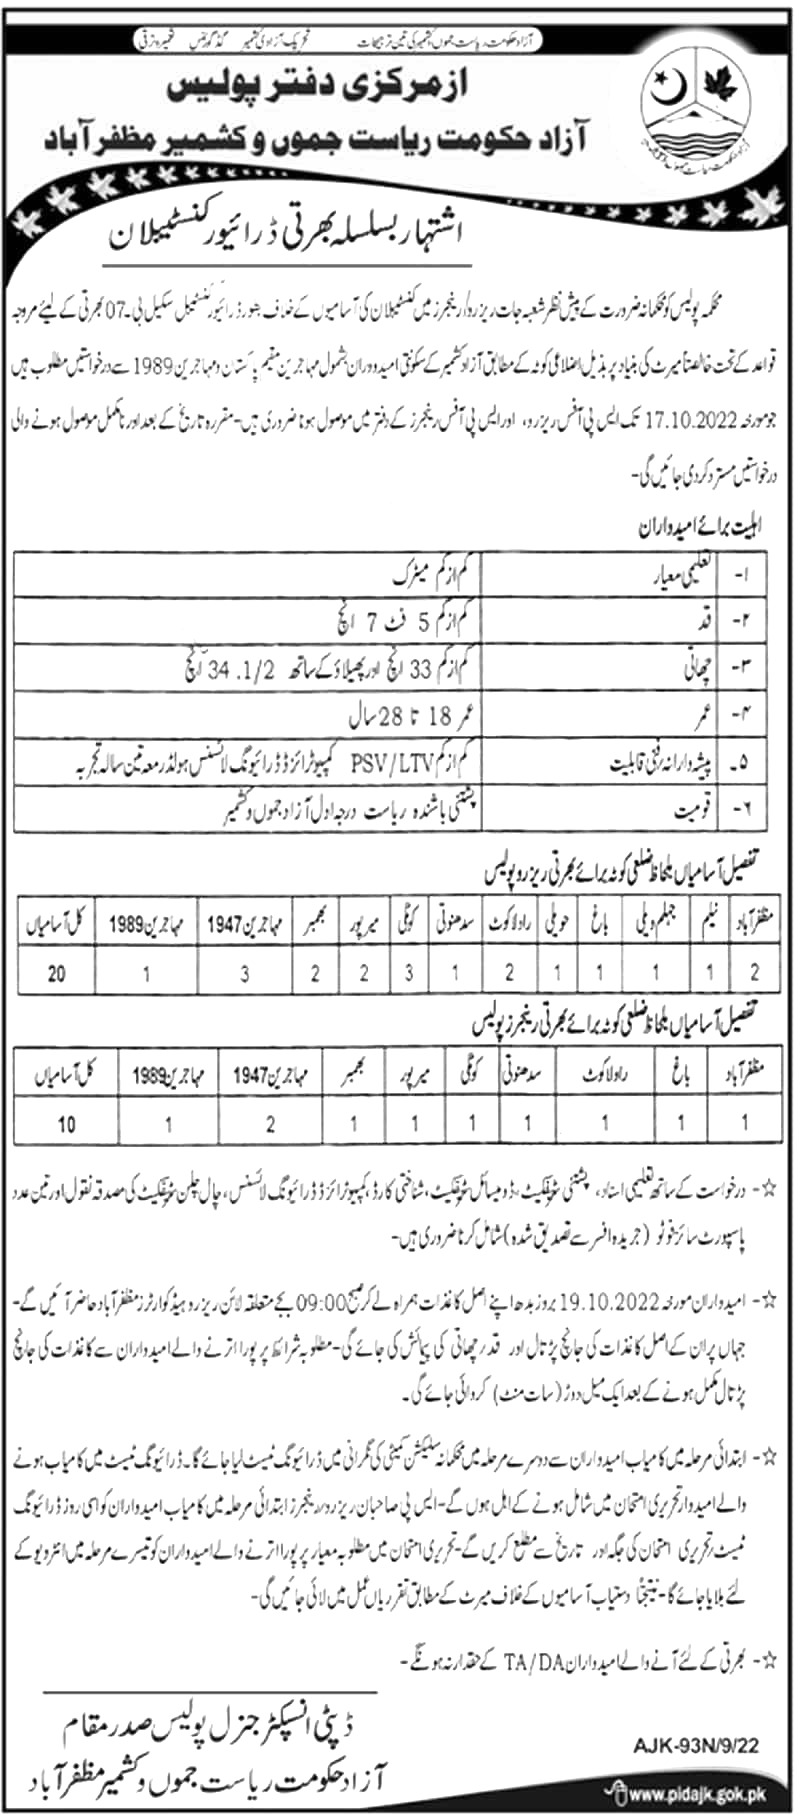 آزاد حکومت ریاست جموں و کشمیر کی تین ترجیحات تحریک آزادی کشمیر گڈ گورننس تعمیر و ترقی
از مرکزی دفتر پولیس
آزاد حکومت ریاست جموں و کشمیر مظفر آباد
اشتہار بسلسلہ بھرتی ڈرائیور کنسٹیبلان
محکمہ پولیس کو محکمانہ ضرورت کے پیش نظر شعبہ جات ریزرو/رینجرز میں کنسٹیبلان کی آسامیوں کے خلاف بطور ڈرائیور کنسٹیبل سکیل بی-07 بھرتی کے لیئے مروجہ
قواعد کے تحت خالصتاً میرٹ کی بنیاد پر بذیل اضلاعی کوٹہ کے مطابق آزاد کشمیر کے سکونتی امیدواران بشمول مہاجرین مقیم پاکستان و مہاجرین 1989 سے درخواستیں مطلوب ہیں
جو مورخہ 17.10.2022 تک ایس پی آفس ریزرو، اور ایس پی آفس رینجرز کے دفتر میں موصول ہونا ضروری ہیں- مقررہ تاریخ کے بعد اور نامکمل موصول ہونے والی
درخواستیں مسترد کر دی جائیں گی-
اہلیت برائے امیدواران
۱- تعلیمی معیار کم از کم میٹرک
۲- قد کم از کم 5 فٹ 7 انچ
۳- چھاتی کم از کم 33 انچ اور پھیلاؤ کے ساتھ 34 .1/2 انچ
۴- عمر عمر 18 تا 28 سال
۵- پیشہ وارانہ رفنی قابلیت کم از کم PSV/LTV کمپیوٹرائزڈ ڈرائیونگ لائسنس ہولڈر معہ تین سالہ تجربہ
۶- قومیت پشتنی باشندہ ریاست درجہ اول آزاد جموں و کشمیر
تفصیل آسامیاں بلحاظ ضلعی کوٹہ برائے بھرتی ریزرو پولیس
مظفر آباد نیلم جہلم ویلی باغ حویلی راولاکوٹ سدھنوتی کوٹلی میر پور بھمبر مہاجرین 1947 مہاجرین 1989 کل آسامیاں
2 1 1 1 1 2 1 3 2 2 3 1 20
تفصیل آسامیاں بلحاظ ضلعی کوٹہ برائے بھرتی رینجرز پولیس
مظفر آباد باغ راولاکوٹ سدھنوتی کوٹلی میر پور بھمبر مہاجرین 1947 مہاجرین 1989 کل آسامیاں
1 1 1 1 1 1 1 2 1 10
☆- درخواست کے ساتھ تعلیمی اسناد، پشتنی سرٹیفکیٹ، ڈومیسائل سرٹیفکیٹ، شناختی کارڈ، کمپیوٹرائزڈ ڈرائیونگ لائسنس، چال چلن سرٹیفکیٹ کی مصدقہ نقول اور تین عدد
پاسپورٹ سائز فوٹو (جریدہ افسر سے تصدیق شدہ) شامل کرنا ضروری ہیں-
☆- امیدواران مورخہ 19.10.2022 بروز بدھ اپنے اصل کاغذات ہمراہ لے کر صبح 09:00 بجے متعلقہ لائن ریزرو ہیڈ کوارٹرز مظفر آباد حاضر آئیں گے-
جہاں پر ان کے اصل کاغذات کی جانچ پڑتال اور قد، چھاتی کی پیمائش کی جائے گی- مطلوبہ شرائط پر پورا اترنے والے امیدواران سے کاغذات کی جانچ
پڑتال مکمل ہونے کے بعد ایک میل دوڑ (سات منٹ) کروائی جائے گی۔
☆- ابتدائی مرحلہ میں کامیاب امیدواران سے دوسرے مرحلہ میں محکمانہ سلیکشن کمیٹی کی نگرانی میں ڈرائیونگ ٹیسٹ لیا جائے گا۔ ڈرائیونگ ٹیسٹ میں کامیاب ہونے
والے امیدوار تحریری امتحان میں شامل ہونے کے اہل ہوں گے- ایس پی صاحبان ریزرو/رینجرز ابتدائی مرحلہ میں کامیاب امیدواران کو اسی روز ڈرائیونگ
ٹیسٹ، تحریری امتحان کی جگہ اور تاریخ سے مطلع کریں گے- تحریری امتحان میں مطلوبہ معیار پر پورا اترنے والے امیدواران کو تیسرے مرحلہ میں انٹرویو کے
لئے بلایا جائے گا- نتیجتاً دستیاب آسامیوں کے خلاف میرٹ کے مطابق تقرریاں عمل میں لائی جائیں گی-
☆- بھرتی کے لئے آنے والے امیدواران TA/DA کے حقدار نہ ہونگے-
ڈپٹی انسپکٹر جنرل پولیس صدر مقام
آزاد حکومت ریاست جموں و کشمیر مظفر آباد
AJK-93N/9/22
www.pidajk.gok.pk